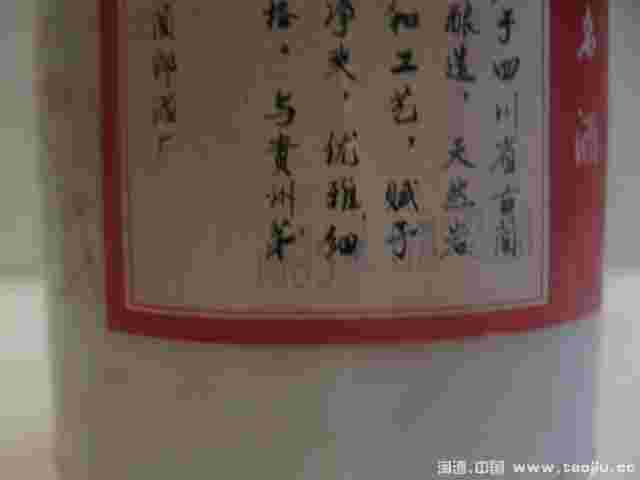 名酒
于四川省古蔺
酿造，天然岩
和工艺，赋予
净爽，优雅细
格，与贵州茅
蔺郎酒厂
淘酒.中国 www.taojiu.cc